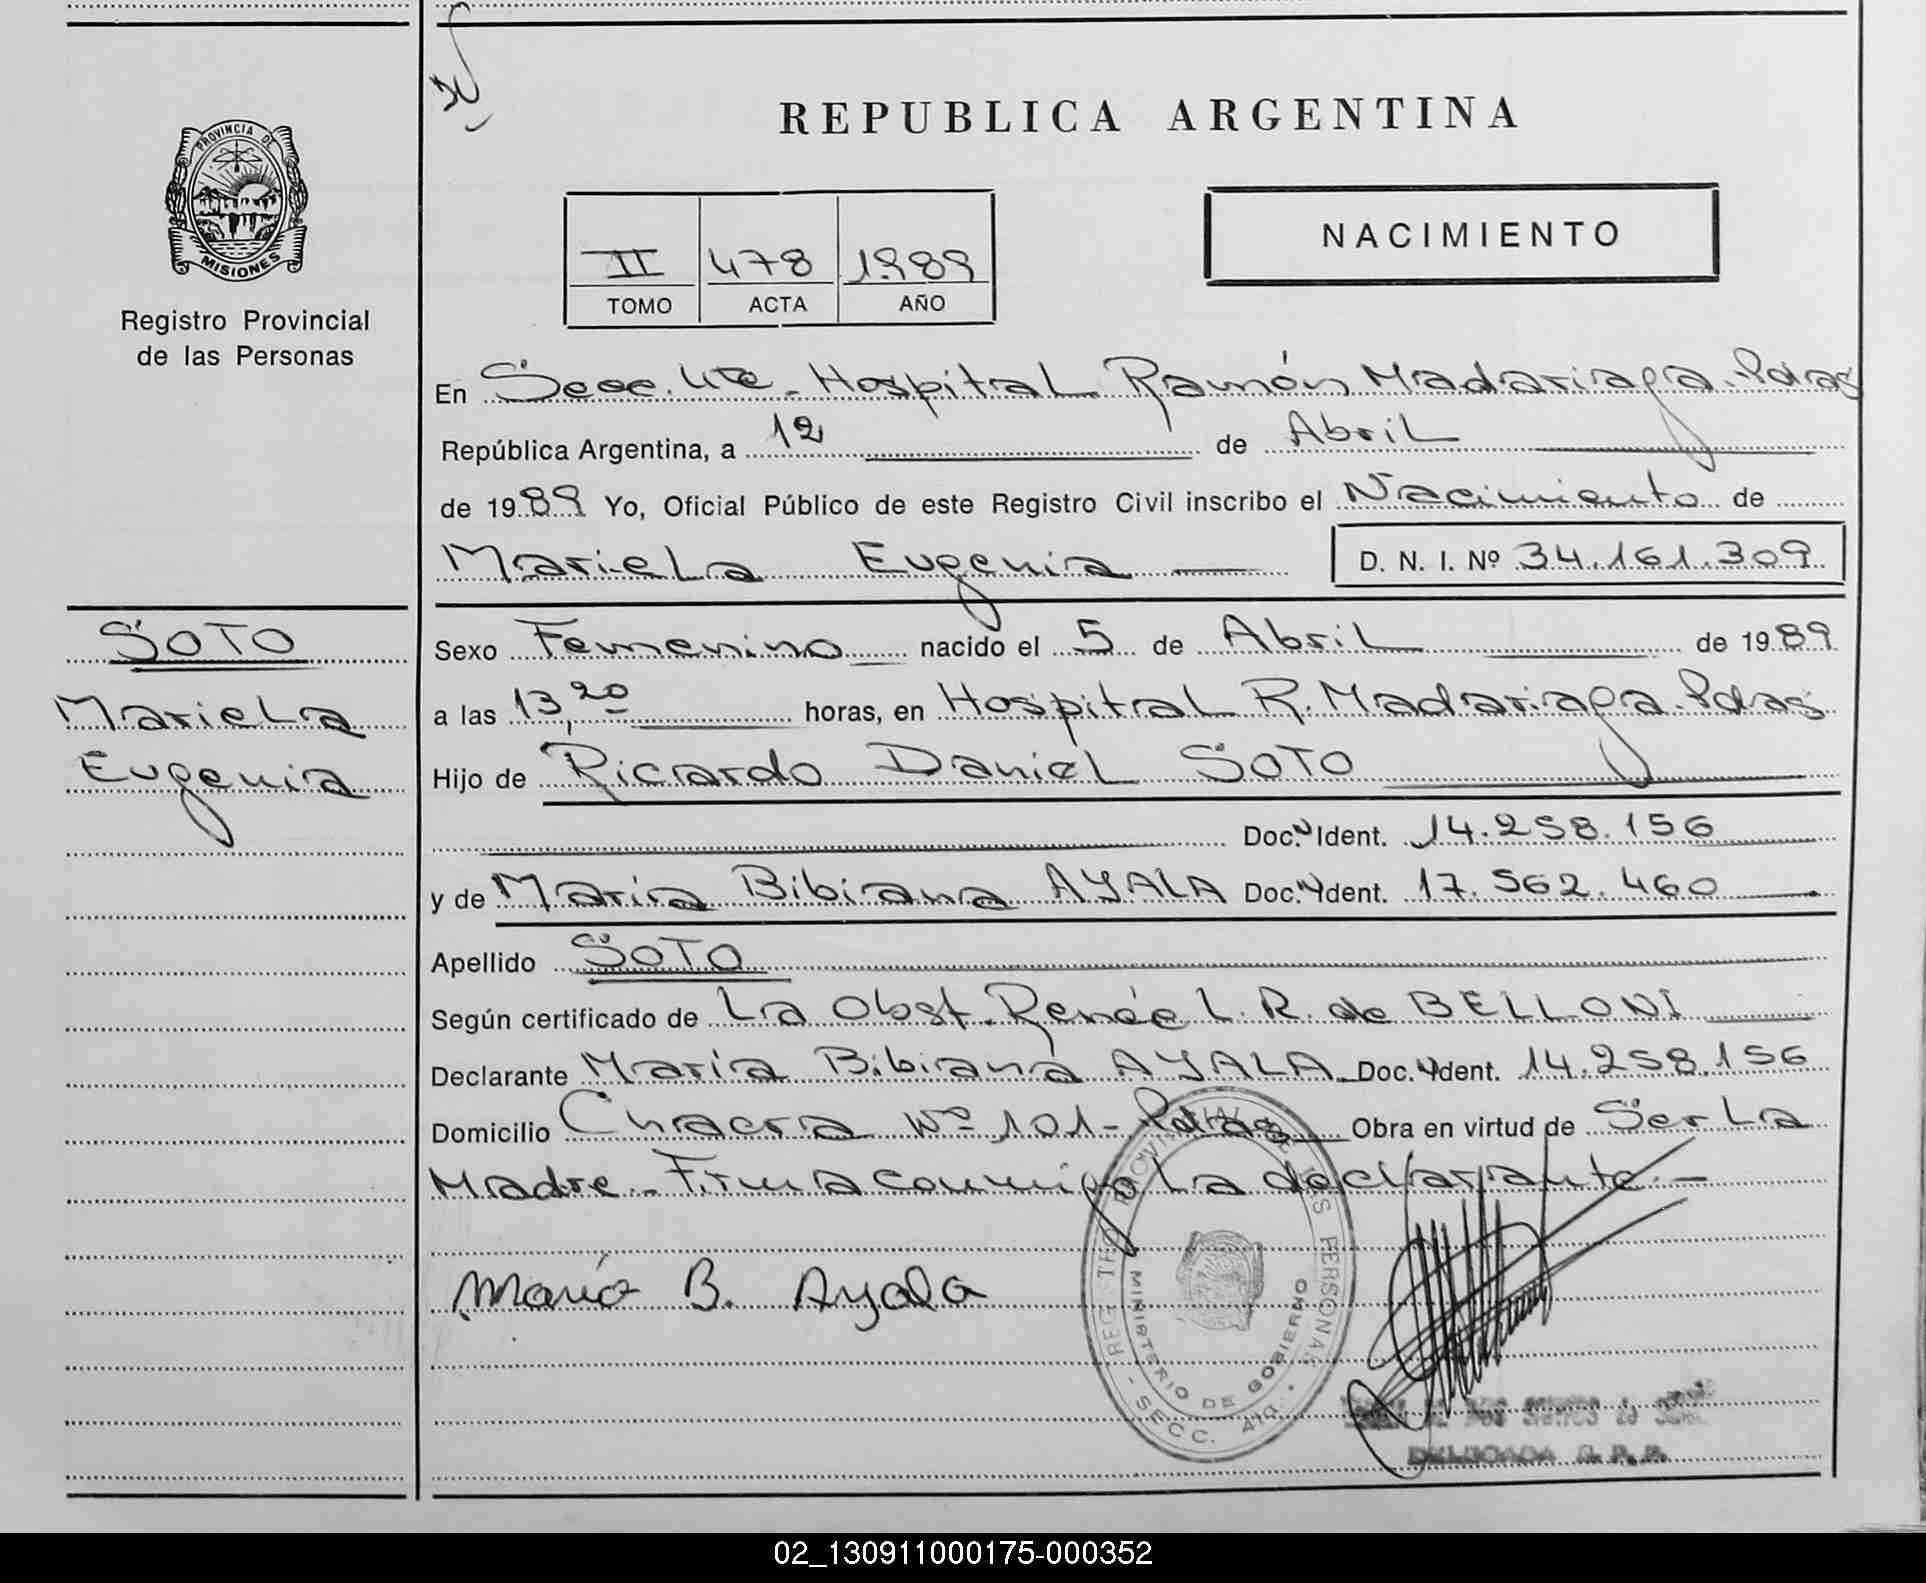 REPUBLICA ARGENTINA
PROVINCIA DE
MISIONES
Registro Provincial
de las Personas
NACIMIENTO
II 478 1989
TOMO ACTA AÑO
En Secc. 4ta - Hospital Ramón Madariaga. Pdas
República Argentina, a 12 de Abril
de 1989 Yo, Oficial Público de este Registro Civil inscribo el Nacimiento de
Mariela Eugenia D. N. I. Nº 34.161.309
SOTO
Mariela
Eugenia
Sexo Femenino nacido el 5 de Abril de 1989
a las 13,20 horas, en Hospital R. Madariaga. Pdas
Hijo de Ricardo Daniel SOTO
Doc. Ident. 14.258.156
y de María Bibiana AYALA Doc. Ident. 17.562.460
Apellido SOTO
Según certificado de La Obst. Renée L. R. de BELLONI
Declarante María Bibiana AYALA Doc. Ident. 14.258.156
Domicilio Chacra Nº 101 - Pdas Obra en virtud de Ser La
Madre. Firma conmigo La declarante.-
María B. Ayala
REGISTRO PROVINCIAL DE LAS PERSONAS
MINISTERIO DE GOBIERNO
SECC. 4ta.
02_130911000175-000352